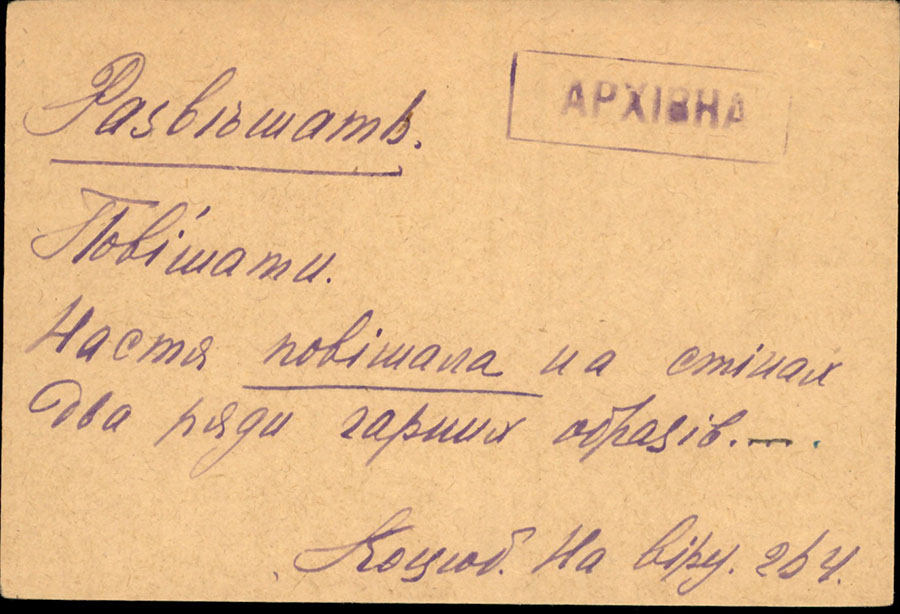 АРХІВНА
Развѣшать.
Пові́шати.
Настя повішала на стінах
два ряди гарних образів. —.
Коцюб. На віру. 264.